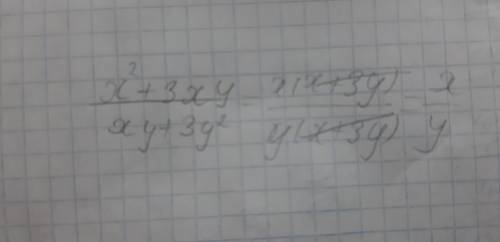 \frac{x^2+3xy}{xy+3y^2} = \frac{x(x+3y)}{y(x+3y)} = \frac{x}{y}